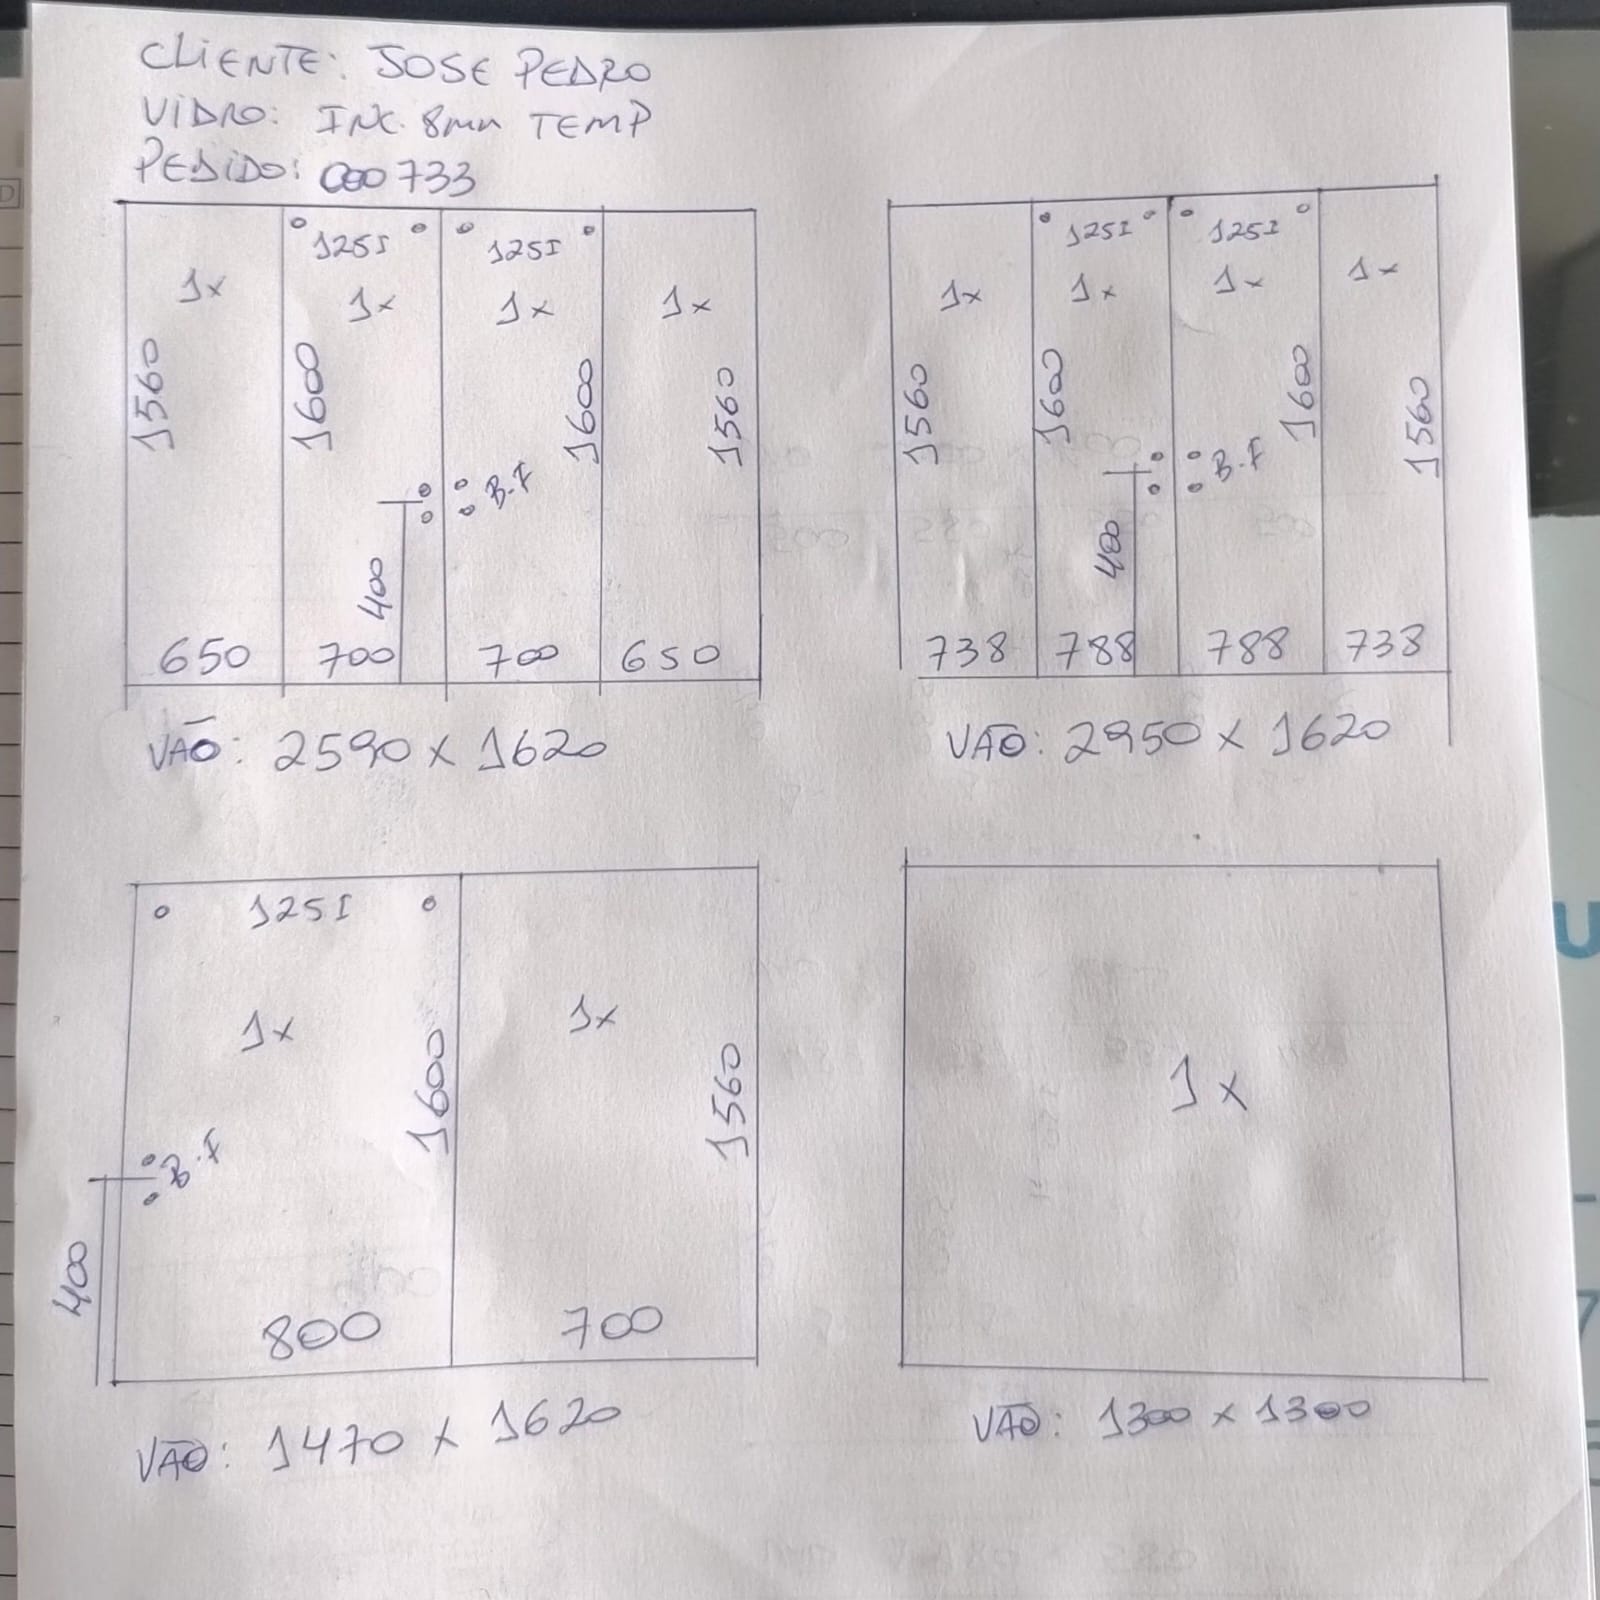 CLIENTE: JOSE PEDRO
VIDRO: INC. 8mm TEMP
PEDIDO: 000733
125I 125I
1x 1x 1x 1x
1560 1600 1600 1560
B.F
400
650 700 700 650
VÃO: 2590 x 1620
125I 125I
1x 1x 1x 1x
1560 1600 1600 1560
B.F
400
738 788 788 738
VÃO: 2950 x 1620
125I
1x 1x
1600 1560
B.F
400
800 700
VÃO: 1470 x 1620
1x
VÃO: 1300 x 1300
U
7